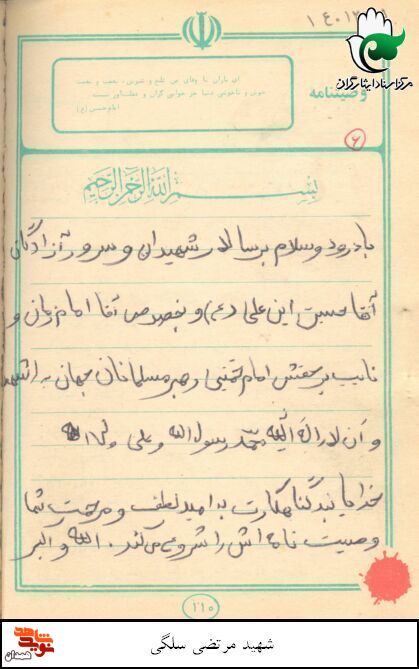 ۱۴۰۱۲
مرکز اسناد ایثارگران
وصیتنامه
ای یاران با وفای من تلخ و شیرین، نعمت و نقمت
خوش و ناخوشی دنیا جز خوابی گران و غفلت‌آور نیست
امام حسین (ع)
۶
بسم الله الرحمن الرحیم
با درود و سلام بر سالار شهیدان و سرور آزادگان
آقا حسین ابن علی (ع) و بخصوص آقا امام زمان و
نایب بر حقش امام خمینی رهبر مسلمانان جهان
و ان لا اله الا الله محمد رسول الله و علی ولی الله
خدایا بنده گنا هکارت به امید لطف و مرحمت شما
وصیت نامه اش را شروع می کند. الله و اکبر
۱۱۰
نوید شاهد
همدان
شهید مرتضی سلگی